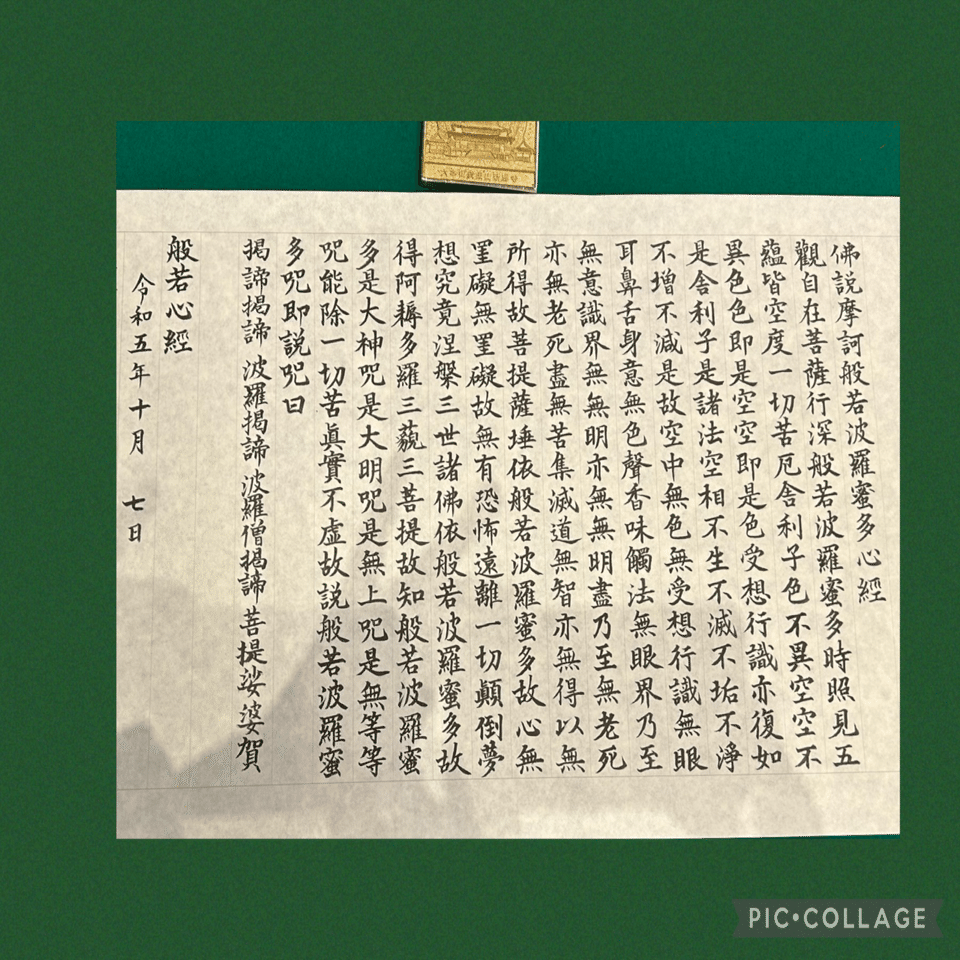 佛説摩訶般若波羅蜜多心經
觀自在菩薩行深般若波羅蜜多時照見五
蘊皆空度一切苦厄舎利子色不異空空不
異色色即是空空即是色受想行識亦復如
是舎利子是諸法空相不生不滅不垢不淨
不増不減是故空中無色無受想行識無眼
耳鼻舌身意無色聲香味觸法無眼界乃至
無意識界無無明亦無無明盡乃至無老死
亦無老死盡無苦集滅道無智亦無得以無
所得故菩提薩埵依般若波羅蜜多故心無
罣礙無罣礙故無有恐怖遠離一切顛倒夢
想究竟涅槃三世諸佛依般若波羅蜜多故
得阿耨多羅三藐三菩提故知般若波羅蜜
多是大神咒是大明咒是無上咒是無等等
咒能除一切苦眞實不虚故説般若波羅蜜
多咒即説咒曰
揭諦揭諦 波羅揭諦 波羅僧揭諦 菩提娑婆賀
般若心經
令和五年十月 七日
PIC•COLLAGE